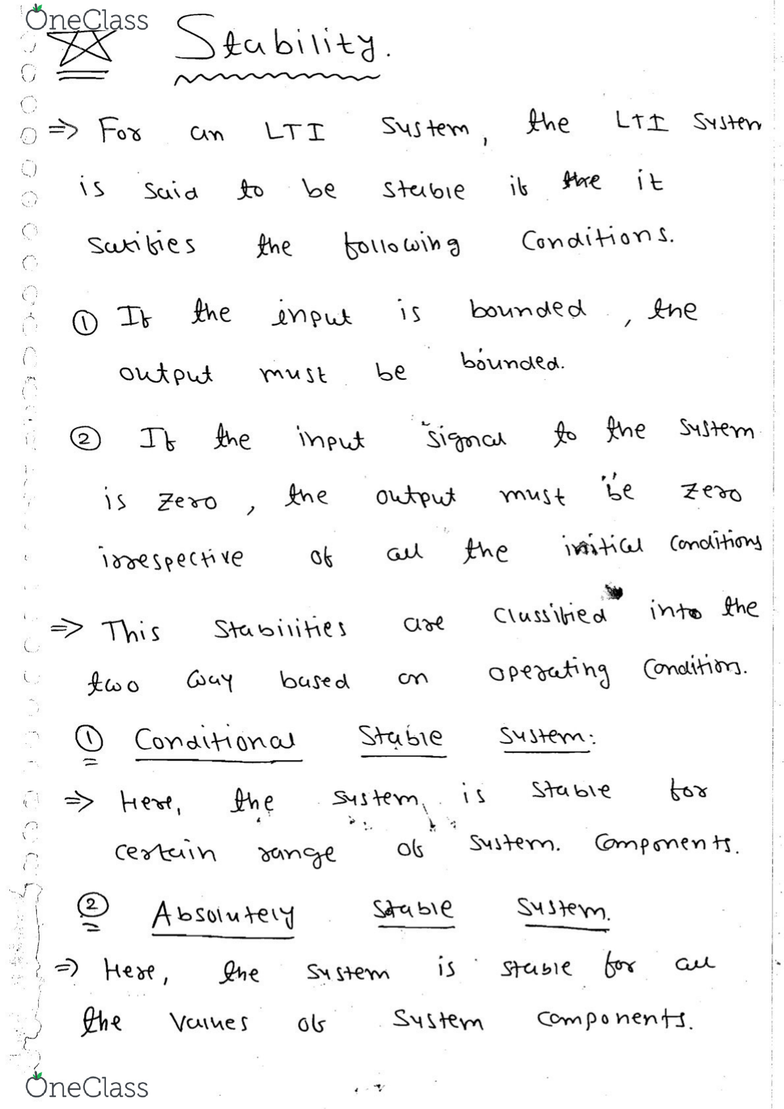 OneClass
Stability.
⇒ For an LTI System, the LTI System
is said to be stable if the it
satisfies the following Conditions.
① If the input is bounded, the
output must be bounded.
② If the input signal to the system
is zero, the output must be zero
irrespective of all the initial conditions
⇒ This Stabilities are classified into the
two way based on operating Condition.
① Conditional Stable System:
⇒ Here, the system is stable for
certain range of system. Components.
② Absolutely Stable System.
⇒ Here, the system is stable for all
the values of system components.
OneClass